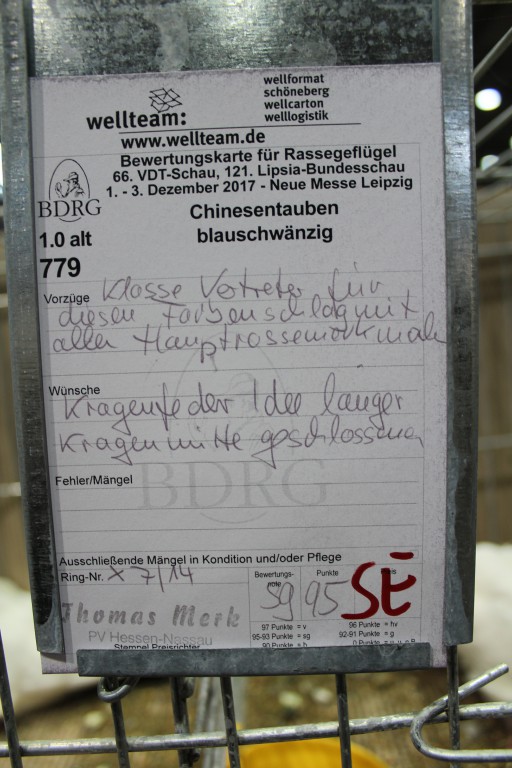 wellteam:
wellformat
schöneberg
wellcarton
welllogistik
www.wellteam.de
Bewertungskarte für Rassegeflügel
66. VDT-Schau, 121. Lipsia-Bundesschau
1. - 3. Dezember 2017 - Neue Messe Leipzig
BDRG
Chinesentauben
blauschwänzig
1.0 alt
779
Vorzüge Klasse Vertreter für
diesen Farbenschlag mit
allen Hauptrassemerkmale
Wünsche
Kragenfeder Idee länger
Kragenmitte geschlossener
Fehler/Mängel
BDRG
Ausschließende Mängel in Kondition und/oder Pflege
Ring-Nr. X 7/14
Bewertungs-
note
Punkte
sg 95 SE
Thomas Merk
PV Hessen-Nassau
Stempel Preisrichter
97 Punkte = v 96 Punkte = hv
95-93 Punkte = sg 92-91 Punkte = g
90 Punkte = b